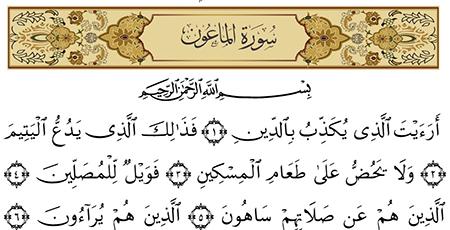 سُورَةُ الْمَاعُونِ
بِسْمِ اللَّهِ الرَّحْمَٰنِ الرَّحِيمِ
أَرَءَيْتَ الَّذِي يُكَذِّبُ بِالدِّينِ ﴿١﴾ فَذَٰلِكَ الَّذِي يَدُعُّ الْيَتِيمَ
﴿٢﴾ وَلَا يَحُضُّ عَلَىٰ طَعَامِ الْمِسْكِينِ ﴿٣﴾ فَوَيْلٌ لِّلْمُصَلِّينَ ﴿٤﴾
الَّذِينَ هُمْ عَن صَلَاتِهِمْ سَاهُونَ ﴿٥﴾ الَّذِينَ هُمْ يُرَاءُونَ ﴿٦﴾